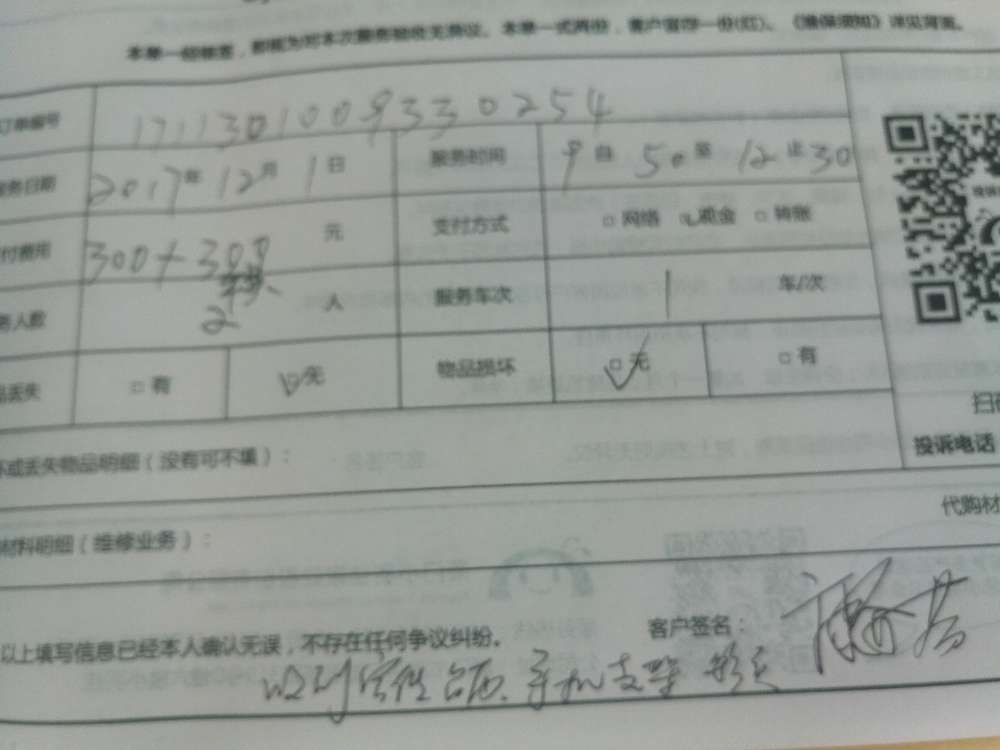 本单一经签署，即视为对本次服务验收无异议。本单一式两份，客户留存一份(红)、《维保须知》详见背面。
订单编号 1711301009330254
务日期 2017年12月1日 服务时间 9自50至12止30
付费用 300+300 元 支付方式 □网络 ☑现金 □转账
务人数 2 人 服务车次 1 车/次
品丢失 □有 ☑无 物品损坏 ☑无 □有
扫
坏或丢失物品明细（没有可不填）： 投诉电话
代购材
材料明细（维修业务）：
以上填写信息已经本人确认无误，不存在任何争议纠纷。 客户签名：
收到 手机支架